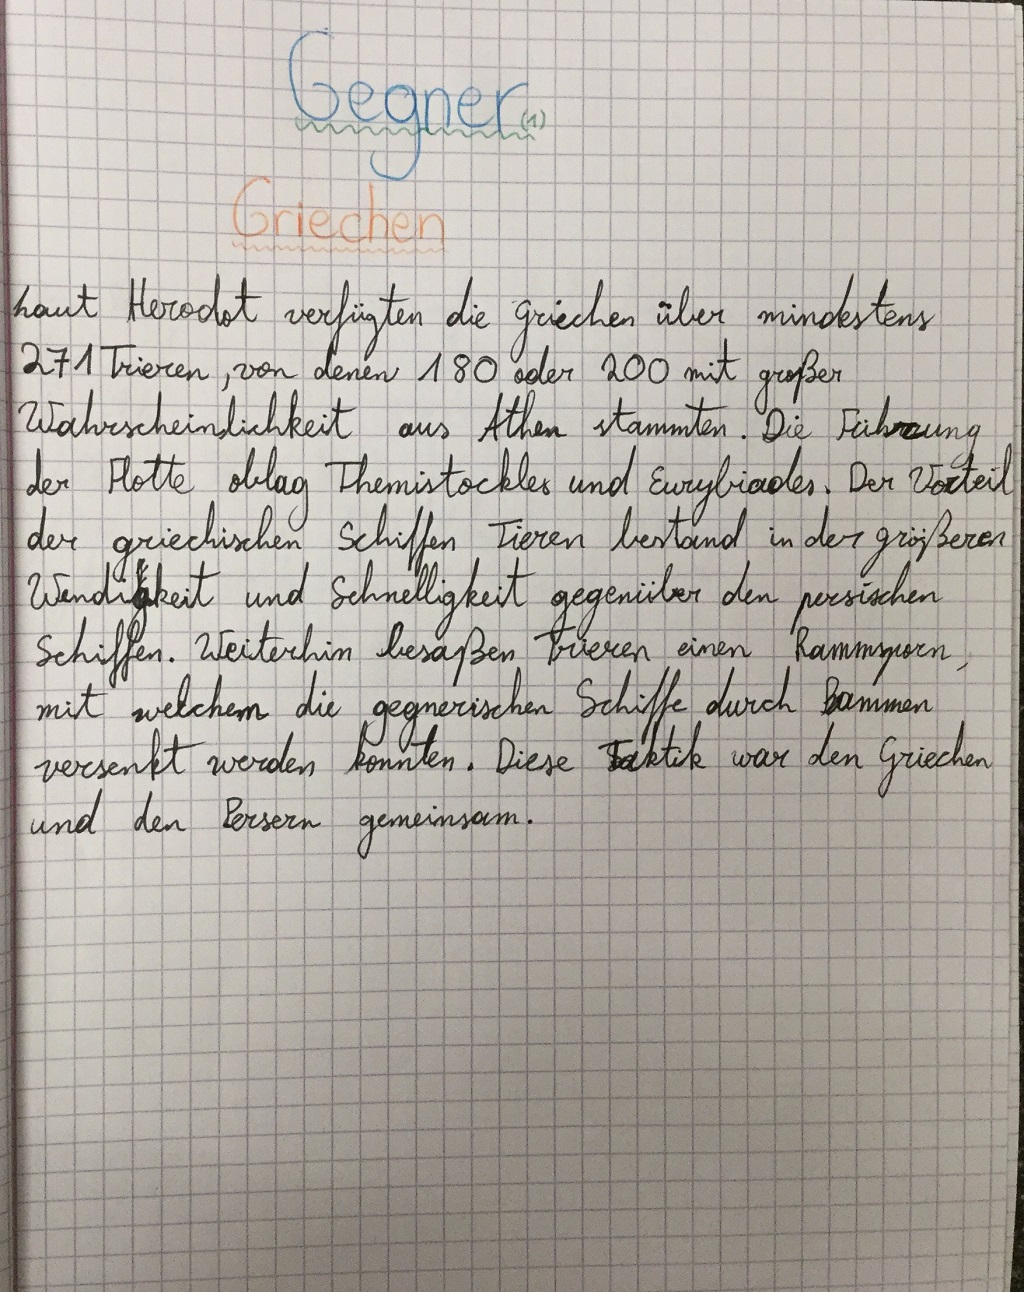 Gegner (1)
Griechen
Laut Herodot verfügten die Griechen über mindestens
271 Trieren, von denen 180 oder 200 mit großer
Wahrscheinlichkeit aus Athen stammten. Die Führung
der Flotte oblag Themistockles und Eurybiades. Der Vorteil
der griechischen Schiffen Tieren bestand in der größeren
Wendigkeit und Schnelligkeit gegenüber den persischen
Schiffen. Weiterhin besaßen Trieren einen Rammsporn,
mit welchem die gegnerischen Schiffe durch Bammen
versenkt werden konnten. Diese Taktik war den Griechen
und den Persern gemeinsam.